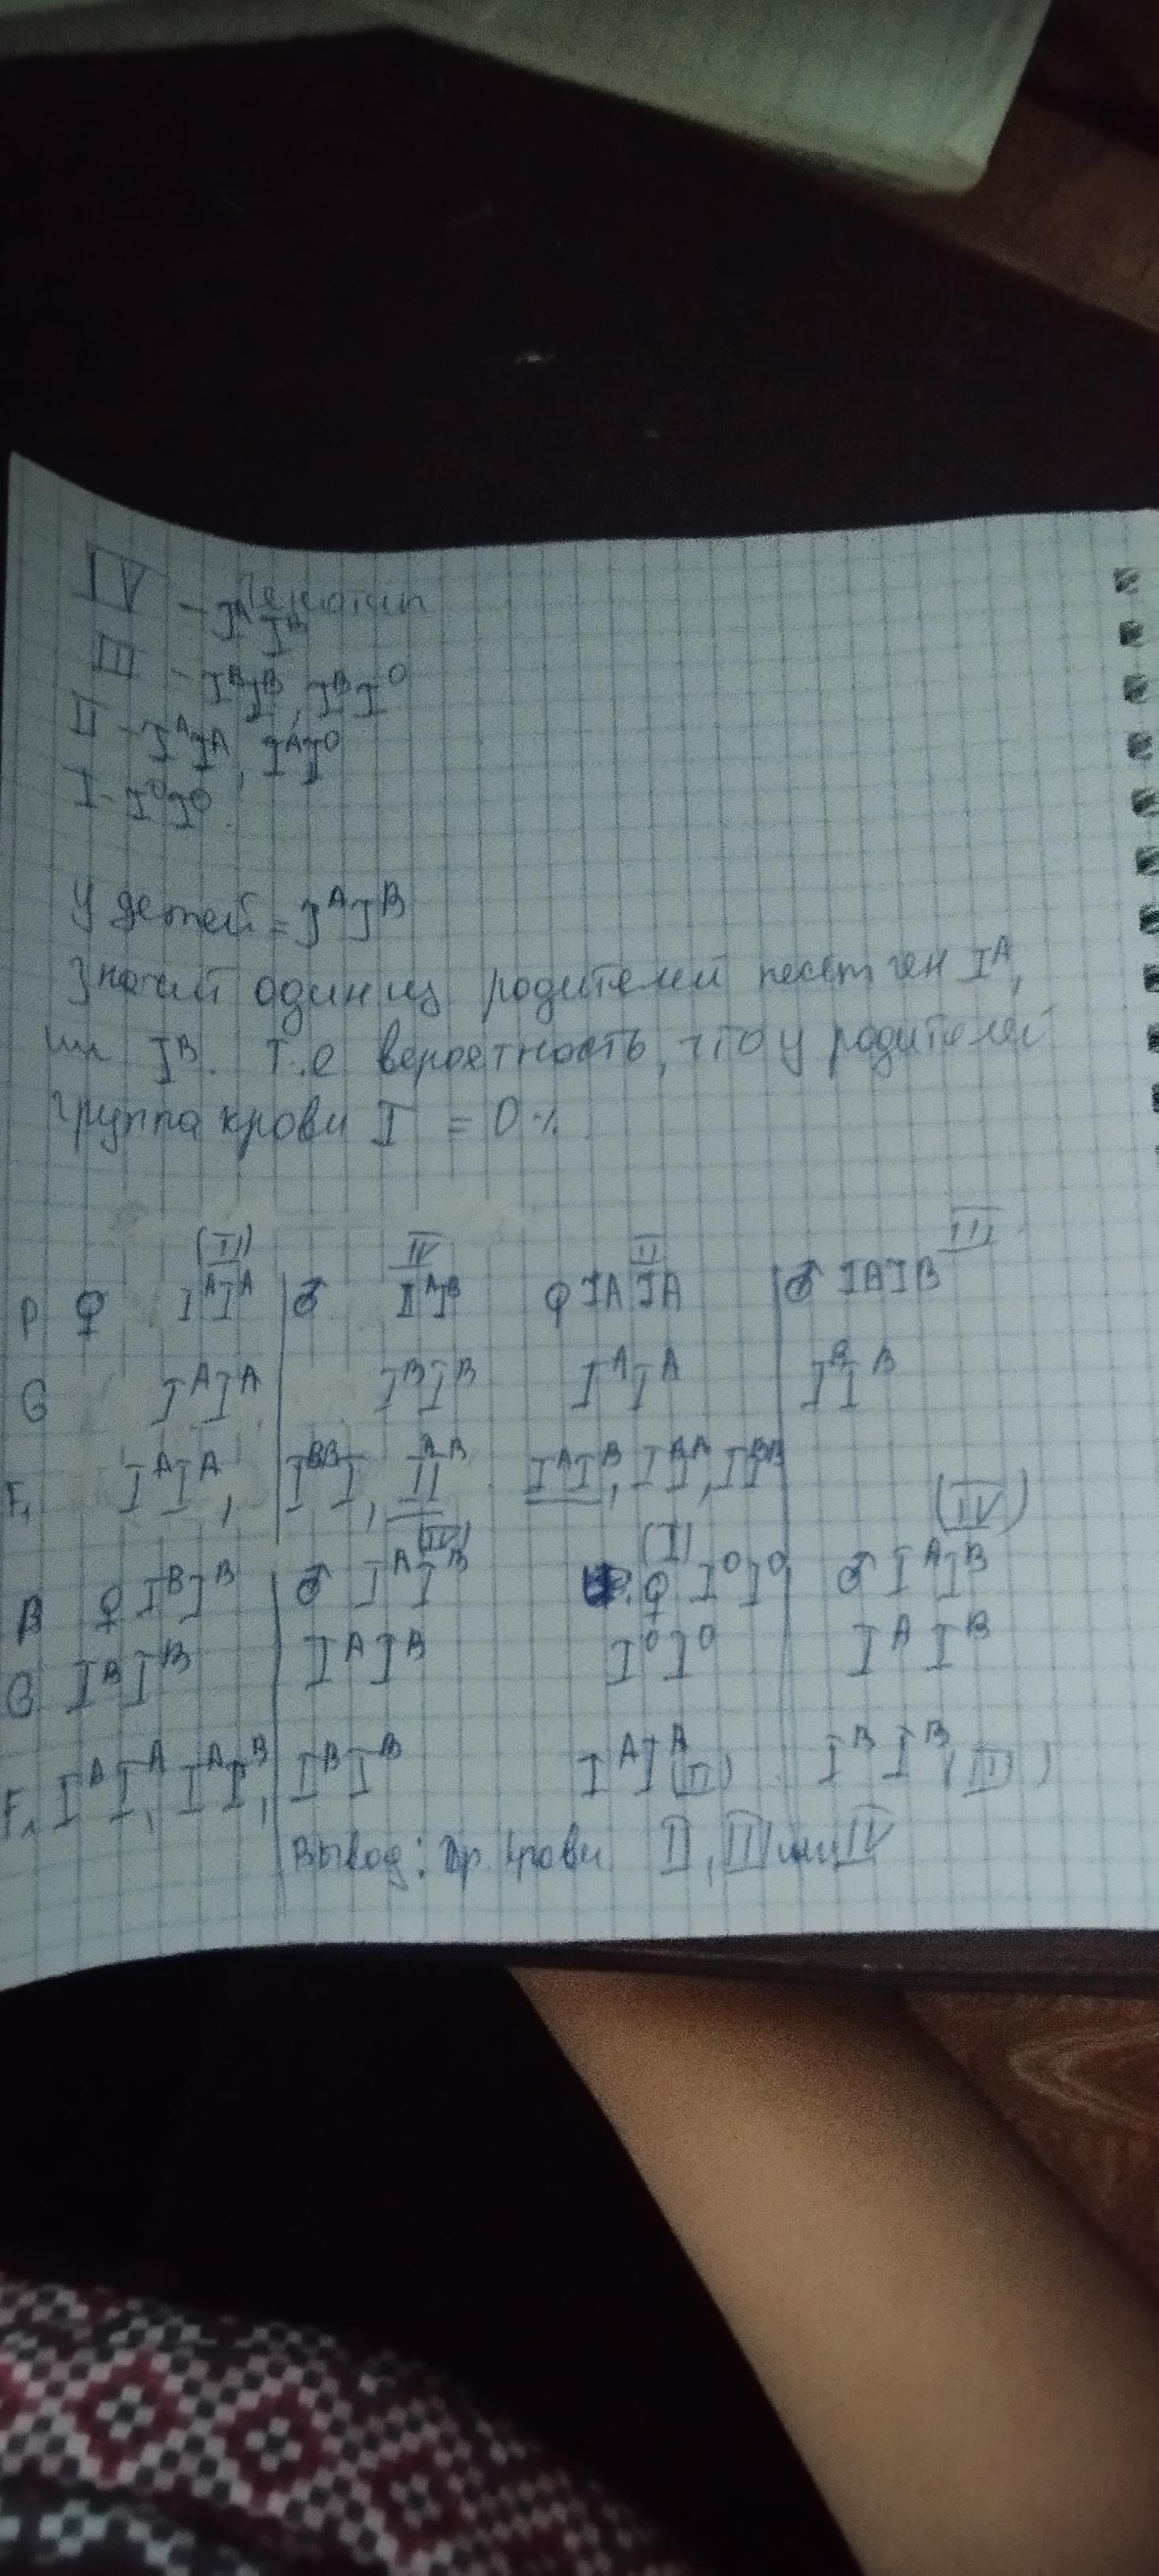 IV - генотип IᴬIᴮ
III - IᴮIᴮ, IᴮI⁰
II - IᴬIᴬ, IᴬI⁰
I - I⁰I⁰
У детей = IᴬIᴮ
Значит один из родителей несёт ген Iᴬ,
или Iᴮ. Т.е вероятность, что у родителей
группа крови I = 0%
(II) IV II III
P ♀ IᴬIᴬ ♂ IᴬIᴮ ♀ IᴬIᴬ ♂
G IᴬIᴬ IᴮIᴮ IᴬIᴬ IᴮIᴮ
F₁ IᴬIᴬ, IᴮIᴮ, IᴬIᴮ IᴬIᴮ, IᴬIᴬ, IᴮIᴮ
(IV) (I) (IV)
♀ IᴮIᴮ ♂ IᴬIᴮ ♀ I⁰I⁰ ♂ IᴬIᴮ
G IᴮIᴮ IᴬIᴮ I⁰I⁰ IᴬIᴮ
F₁ IᴬIᴬ, IᴬIᴮ, IᴮIᴮ (II) IᴮIᴮ (III)
Вывод: гр. крови II, III или IV